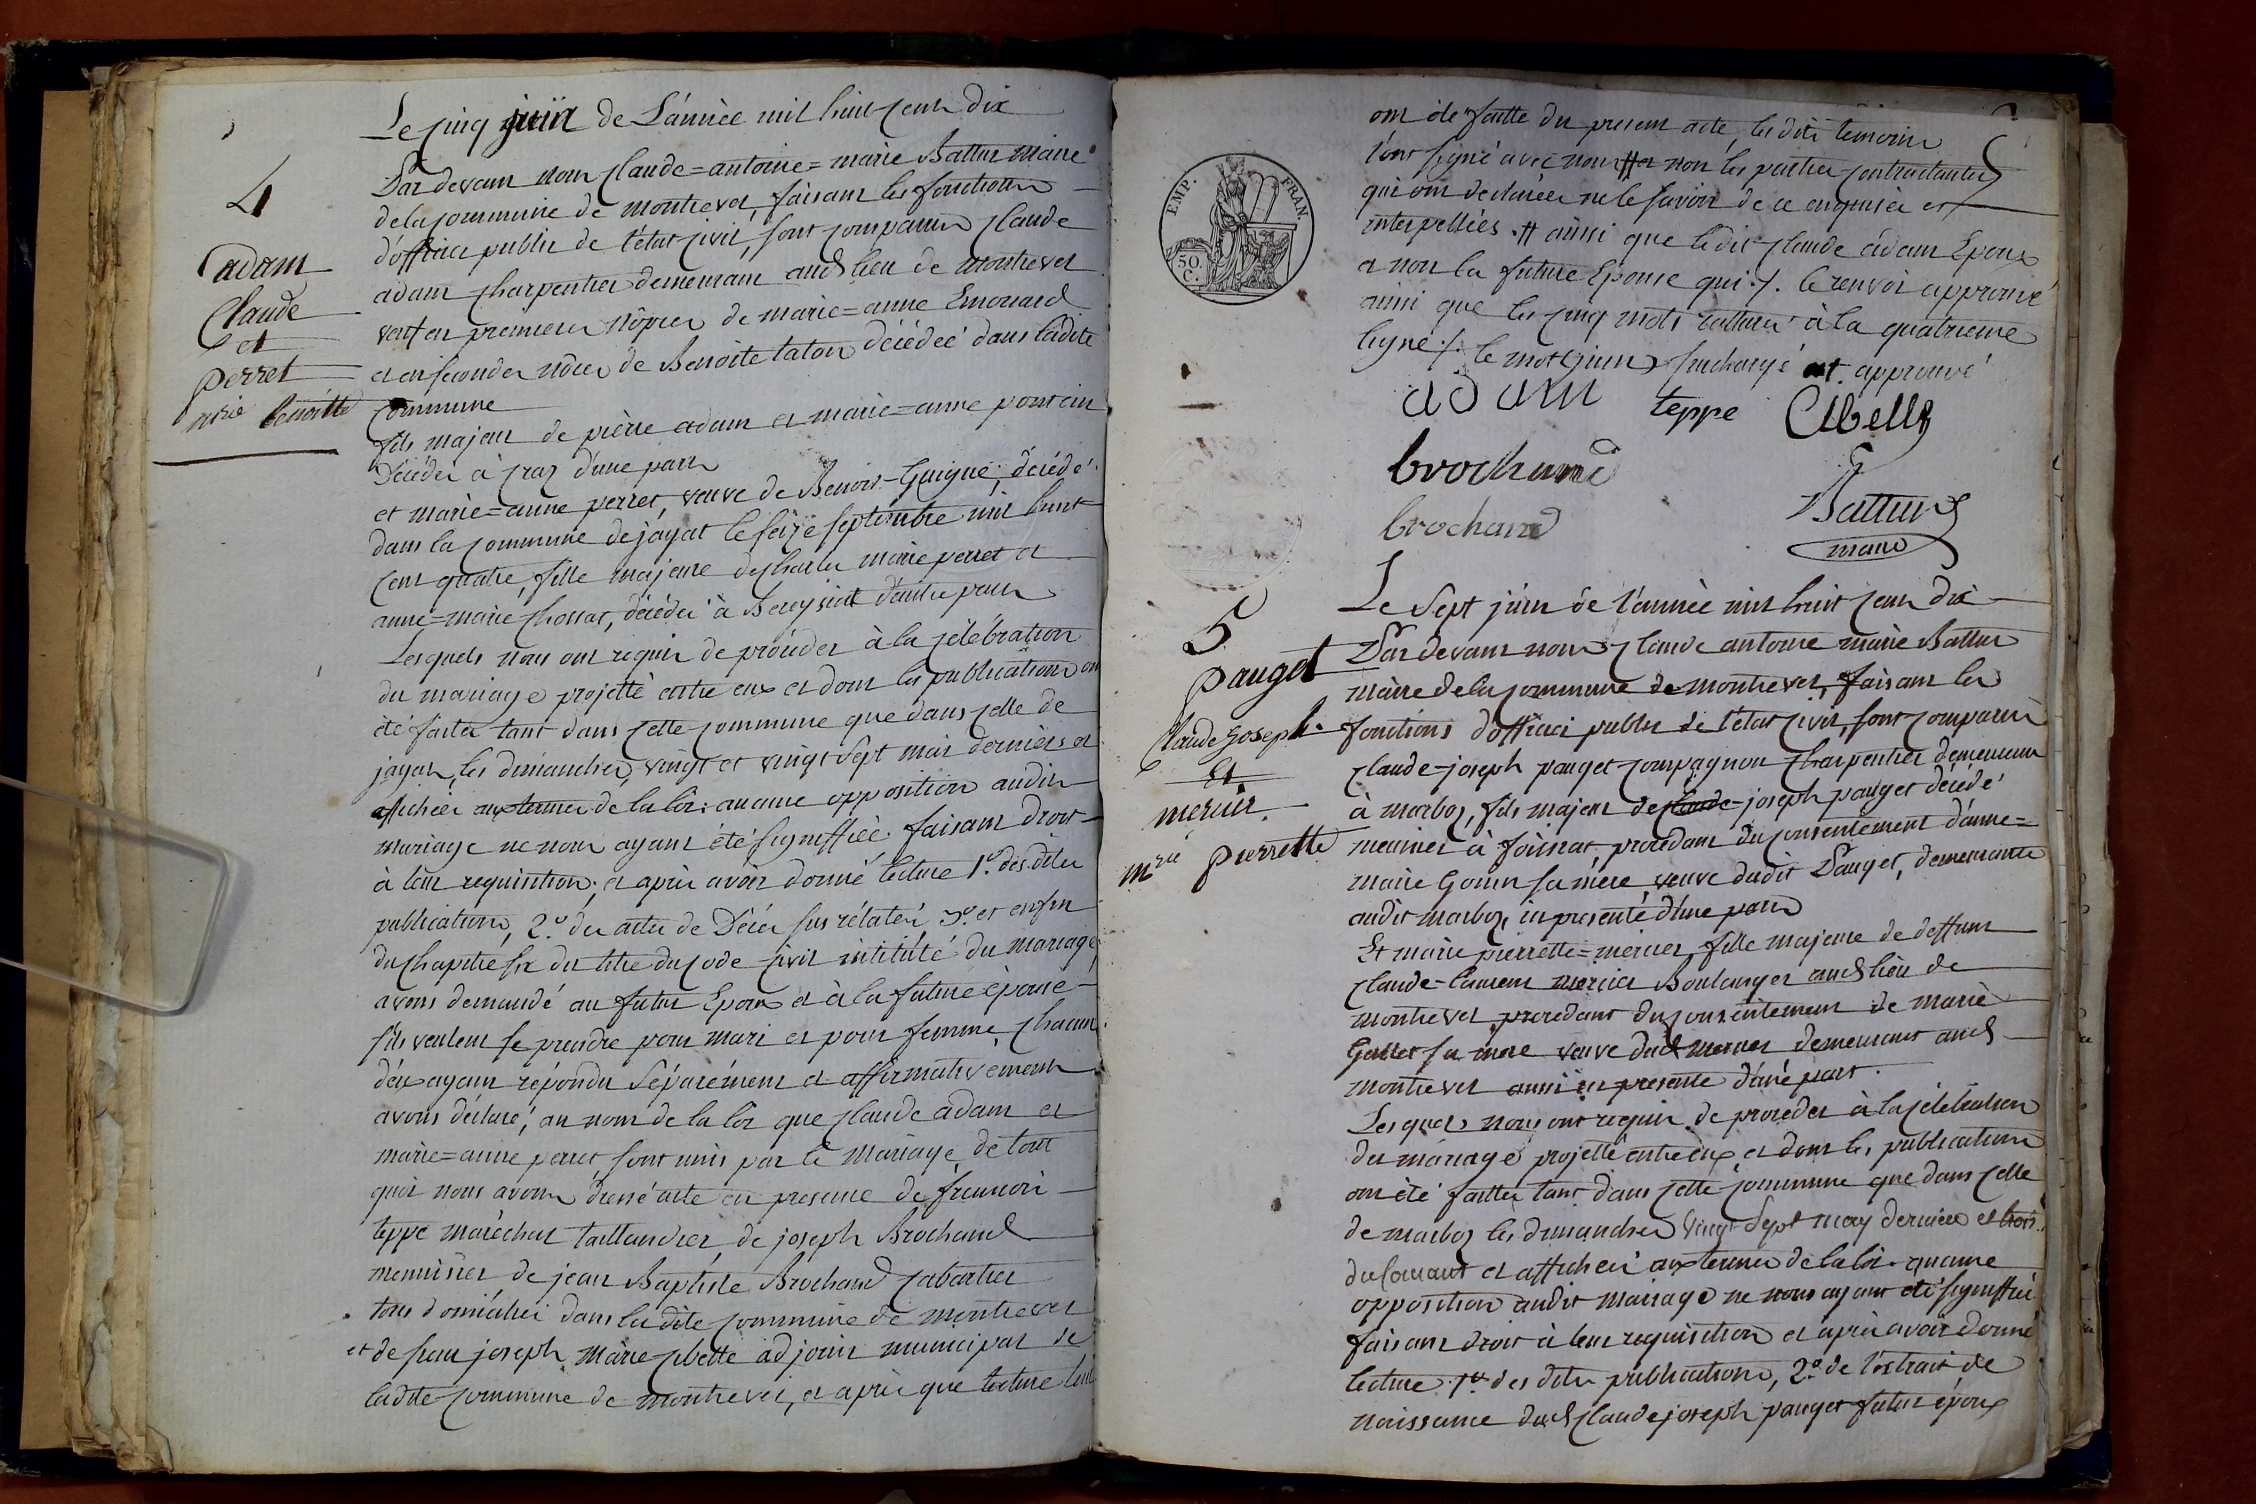 4
adam
Claude
et
perret
mrie benoitte
Le cinq juin de L'année mil huit cent dix
Par devant nous Claude=antoine=marie Battur maire
de la commune de montrevel, faisant les fonctions
d'officier public de l'état civil, sont comparus Claude
adam charpentier demeurant aud lieu de montrevel
veuf en premieres nôpces de marie=anne Emorard
et en secondes nôces de Benoite taton décédée dans ladite
commune
fils majeur de pierre adam et marie=anne poncin
décédés à craz d'une part
et marie=anne perret, veuve de Benoit Guigue, décédé
dans la commune de jayat le seize septembre mil huit
cent quatre, fille majeure de charles marie perret et
anne=marie Chossat, décédés à Bereysiat d'autre part
Lesquels nous ont requis de procéder à la célébration
du mariage projetté entre eux et dont les publications ont
été faites tant dans cette commune que dans celle de
jayat, les dimanches vingt et vingt sept mai derniers et
affichées aux termes de la loi: aucune opposition audit
mariage ne nous ayant été signiffiée. faisant droit
à leur requisition; et après avoir donné lecture 1.º des dites
publications, 2.º des actes de Décès sus rélatés, 3.º et enfin
du chapitre six du titre du code civil intitulé du mariage,
avons demandé au futur Epoux et à la future épouse
s'ils veulent se prendre pour mari et pour femme, chacun
d'eux ayant répondu séparément et affirmativement
avons déclaré, au nom de la loi que Claude adam et
marie=anne perret, sont unis par le mariage, de tout
quoi nous avons dressé acte en presence de françois
teppe maréchal taillandier, de joseph Brochand
menuisier de jean Baptiste Brochand cabartier
tous domiciliés dans ladite commune de montrevel
et de sieur joseph marie Cibelle adjoint municipal de
ladite commune de montrevel, et après que lecture leur
EMP. FRAN.
50
C.
ont été faitte du present acte, les dits temoins
l'ont signé avec nous # et non les parties contractantes
qui ont declarées ne le savoir de ce enquises et
interpellées. # ainsi que ledit Claude adam Epoux
et non la future Epouse qui ./. le renvoi approuvé
ainsi que les cinq mots rattures à la quatrieme
ligne ./. le mot juin surchargé est approuvé
adam teppe Cibelle
brochand
brochand Battur
maire
5
pauget
Claude Joseph
Et
mercier
mrie pierrette
Le sept juin de l'année mil huit cent dix
Par devant nous Claude antoine marie Battur
maire de la commune de montrevel, faisant les
fonctions d'officier public de l'état civil, sont comparus
Claude-joseph pauget compagnon charpentier demeurant
à marboz, fils majeur de Claude-joseph pauget décédé
meunier à foissiat, procedant du consentement d'anne=
marie Gouin sa mere, veuve dudit Pauget, demeurante
audit marboz, ici presente d'une part
Et marie pierrette=mercier fille majeure de deffunt
Claude-laurent mercier Boulanger aud lieu de
montrevel procedant du consentement de marie
Gallet sa mere veuve dud mercier demeurant aud
montrevel aussi ici presente d'autre part.
Lesquels nous ont requis de proceder à la célébration
du mariage projetté entre eux, et dont les publications
ont été faittes tant dans cette commune que dans celle
de marboz les dimanches vingt sept may dernier et trois
du courant et affichées aux termes de la loi. aucune
opposition audit mariage ne nous ayant été signiffiée
faisant droit à leur requisition et après avoir donné
lecture 1.º des dites publications, 2.º de l'extrait de
naissance dud Claude joseph pauget futur époux